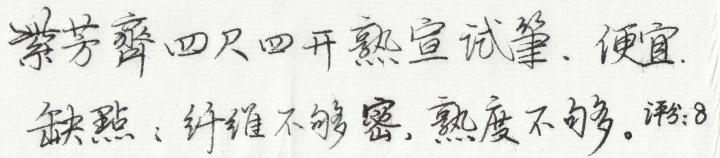 紫芳齊四尺四开熟宣试筆.便宜.
缺點:纤维不够密,熟度不够。评分:8